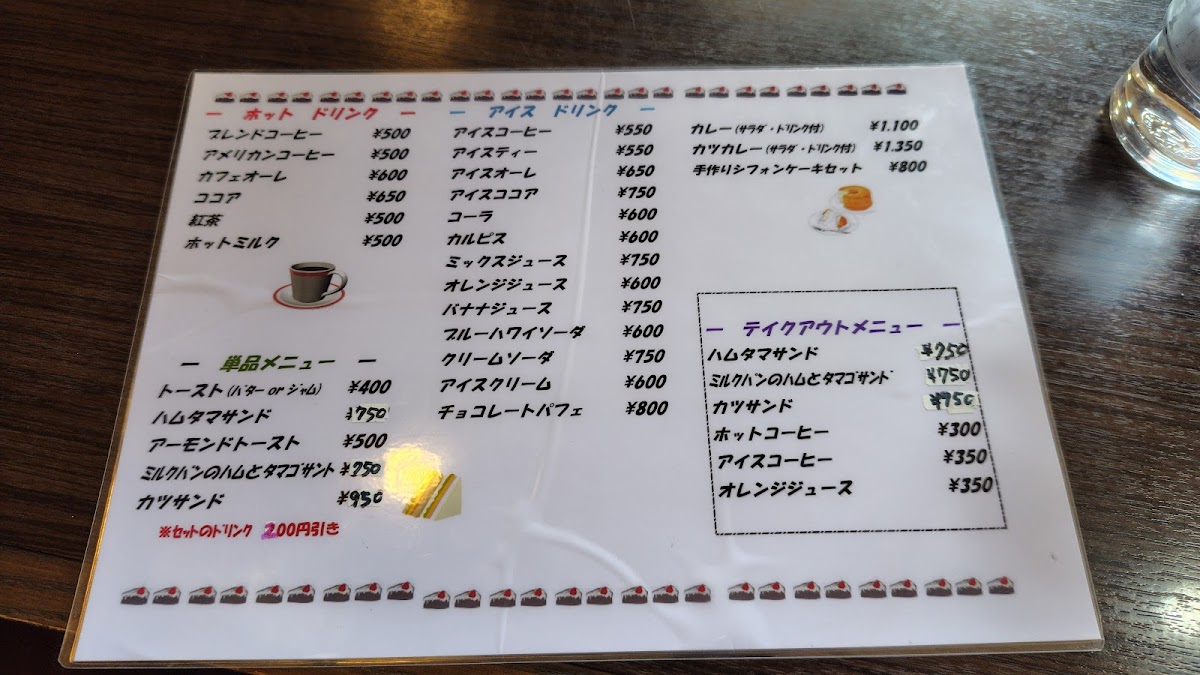 ー ホット ドリンク ー
ブレンドコーヒー ¥500
アメリカンコーヒー ¥500
カフェオーレ ¥600
ココア ¥650
紅茶 ¥500
ホットミルク ¥500
ー 単品メニュー ー
トースト(バター or ジャム) ¥400
ハムタマサンド ¥750
アーモンドトースト ¥500
ミルクパンのハムとタマゴサンド ¥750
カツサンド ¥950
※セットのドリンク 200円引き
ー アイス ドリンク ー
アイスコーヒー ¥550
アイスティー ¥550
アイスオーレ ¥650
アイスココア ¥750
コーラ ¥600
カルピス ¥600
ミックスジュース ¥750
オレンジジュース ¥600
バナナジュース ¥750
ブルーハワイソーダ ¥600
クリームソーダ ¥750
アイスクリーム ¥600
チョコレートパフェ ¥800
カレー(サラダ・ドリンク付) ¥1.100
カツカレー(サラダ・ドリンク付) ¥1.350
手作りシフォンケーキセット ¥800
ー テイクアウトメニュー ー
ハムタマサンド ¥750
ミルクパンのハムとタマゴサンド ¥750
カツサンド ¥950
ホットコーヒー ¥300
アイスコーヒー ¥350
オレンジジュース ¥350